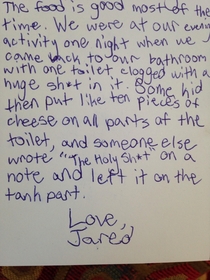 The food is good most of the
time. We were at our evening
activity one night when we
came back to our bathroom
with one toilet clogged with a
huge sh*t in it. Some kid
then put like ten pieces of
cheese on all parts of the
toilet, and someone else
wrote "The Holy Sh*t" on a
note and left it on the
tank part.
Love,
Jared